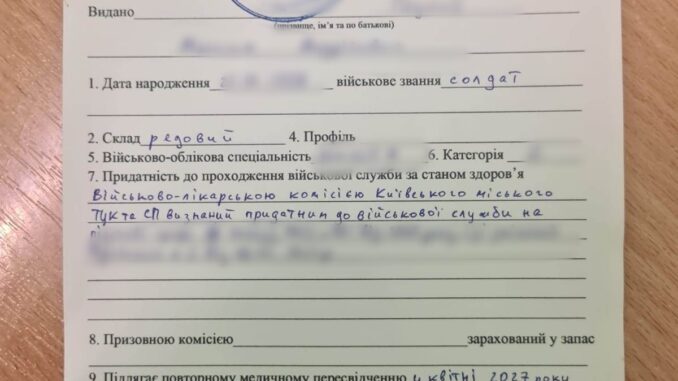 Видано
(прізвище, ім'я та по батькові)
1. Дата народження військове звання солдат
2. Склад редовий 4. Профіль
5. Військово-облікова спеціальність 6. Категорія
7. Придатність до проходження військової служби за станом здоров'я
Військово-лікарською комісією Київського міського
ТЦК та СП визнаний придатним до військової служби на
8. Призовною комісією зарахований у запас
9. Підлягає повторному медичному пересвідченню у квітні 2027 року